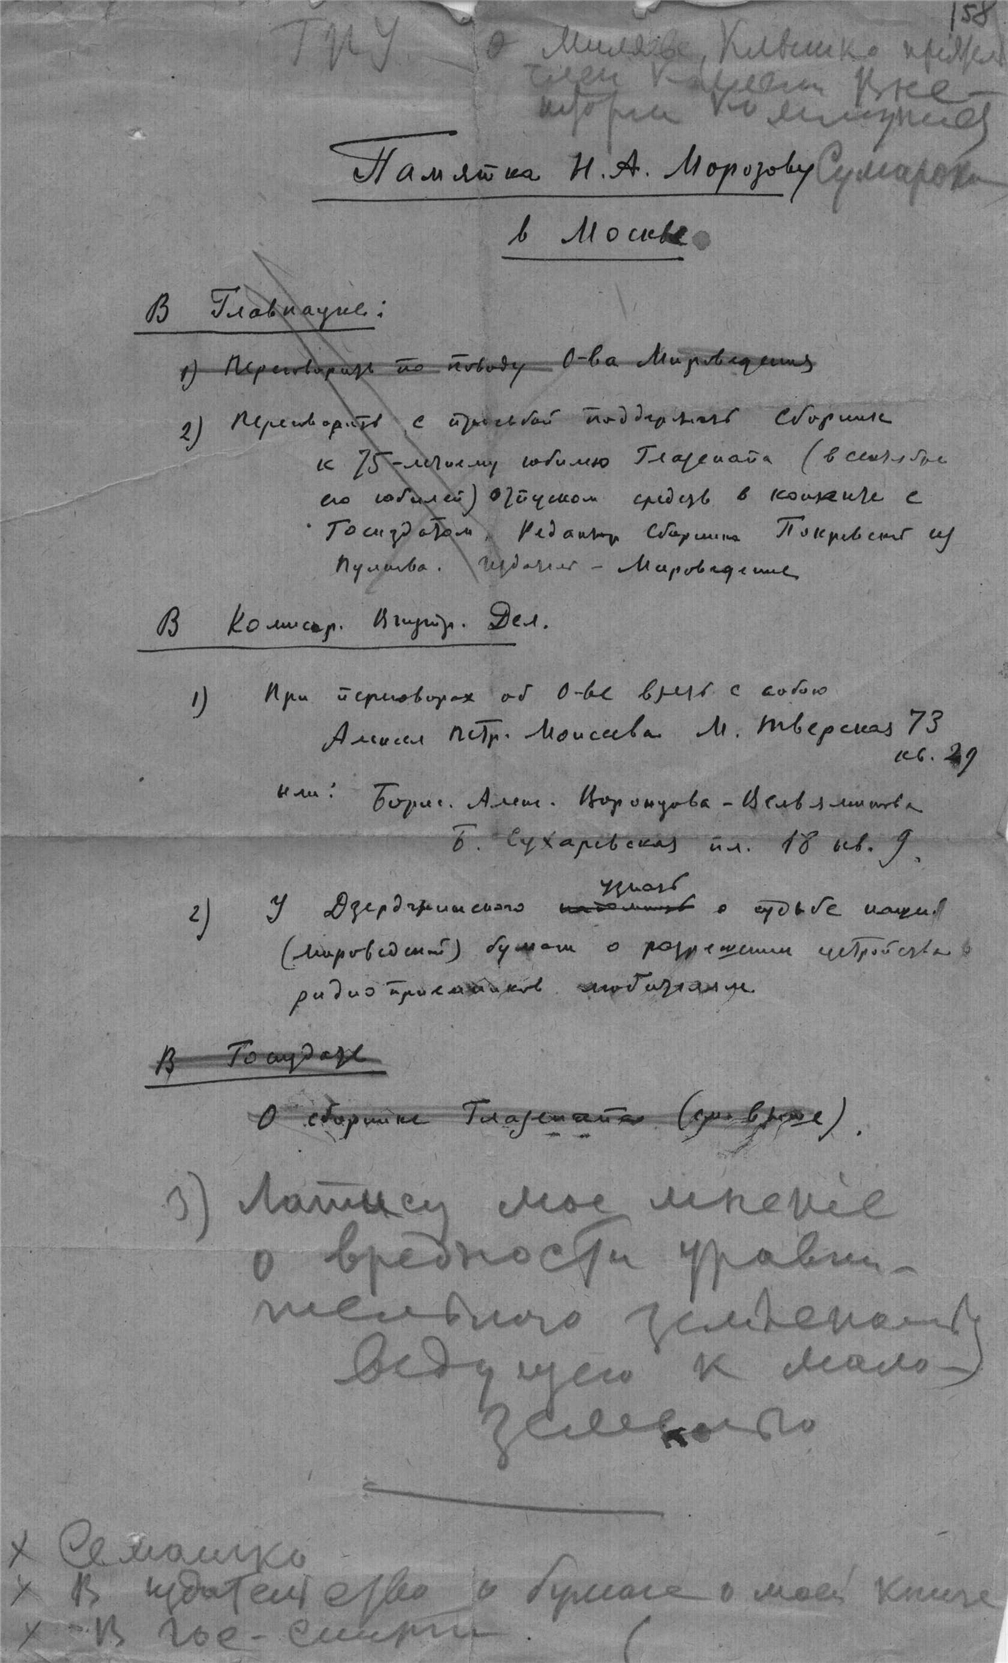 158
ГПУ
о
Памятка Н. А. Морозову
в Москве
В Главнауке:
1) Переговорить по поводу О-ва Мироведения
2) Переговорить с просьбой поддержать сборник
к 75-летнему юбилею Глазенапа (в сентябре
его юбилей) отпуском средств в контакте с
Госиздатом. Редактор сборника Покровский из
Пулкова. Издание - Мироведение
В Комисар. Внутр. Дел.
1) При переговорах об О-ве взять с собою
Алексея Петр. Моисеева М. Тверская 73
кв. 29
или: Борис. Алек. Воронцова-Вельяминова
Б. Сухаревская пл. 18 кв. 9.
узнать
2) У Дзержинского напомнить о судьбе нашей
(мироведской) бумаги о разрешении устройства
радиоприемников любителям
В Госиздате
О сборнике Глазенапа (см. выше).
3) Латису мое мненіе
о вредности уравни-
тельного
ведущего к мало-
земелью
х Семашко
х В издательство о бумаге о моей книге
х В гос-